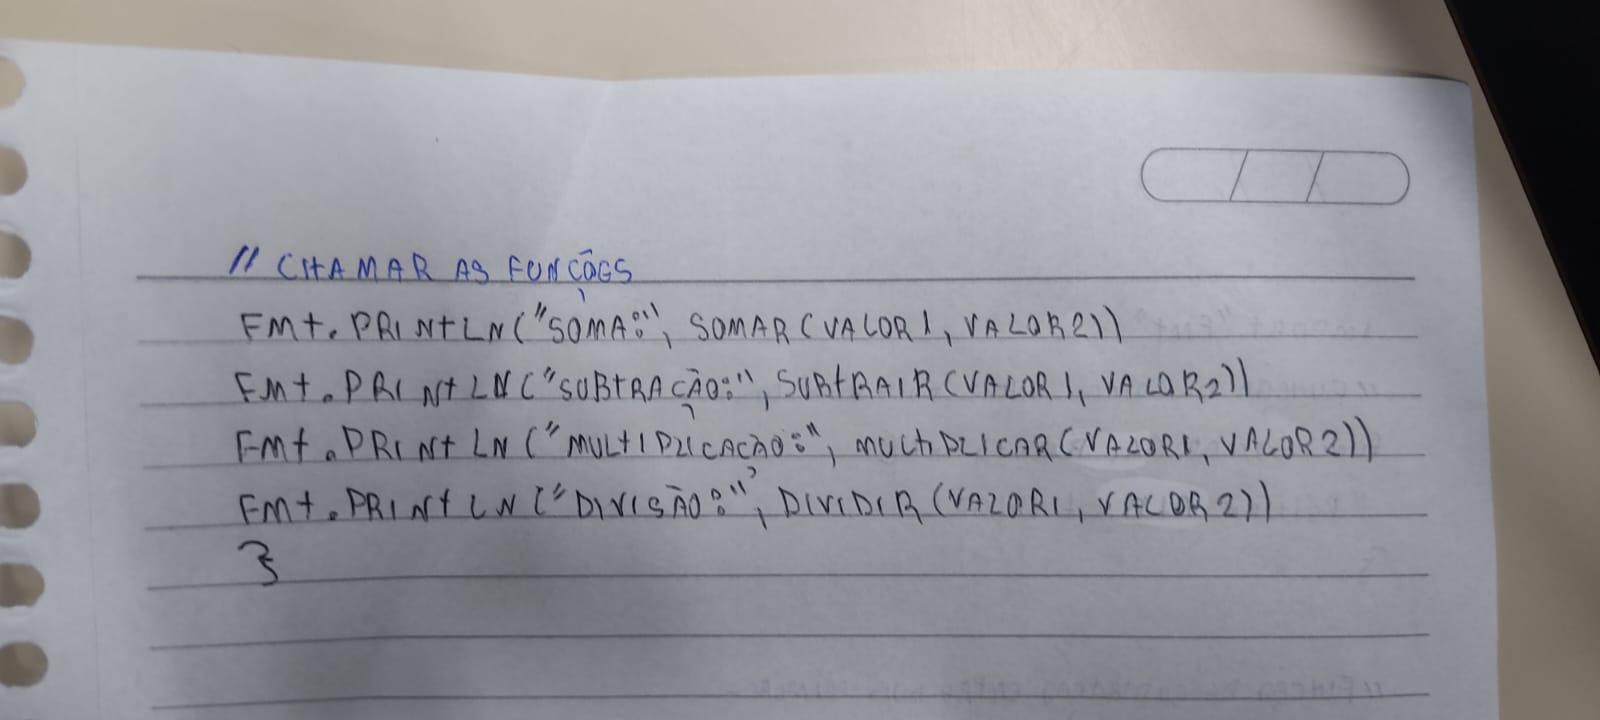 // CHAMAR AS FUNÇÕES
FMT.PRINTLN("SOMA:", SOMAR(VALOR1, VALOR2))
FMT.PRINTLN("SUBTRAÇÃO:", SUBTRAIR(VALOR1, VALOR2))
FMT.PRINTLN("MULTIPLICAÇÃO:", MULTIPLICAR(VALOR1, VALOR2))
FMT.PRINTLN("DIVISÃO:", DIVIDIR(VALOR1, VALOR2))
}